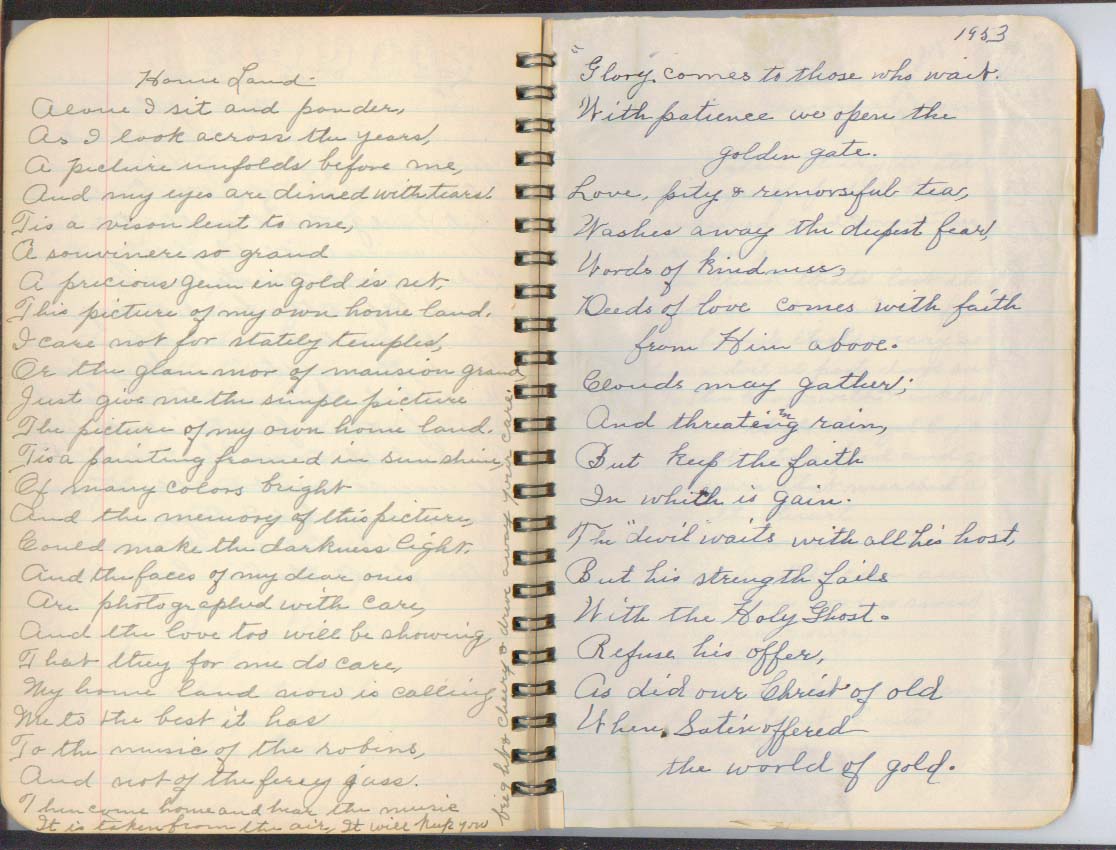 Home Land.
Alone I sit and ponder,
As I look across the years,
A picture unfolds before me,
And my eyes are dimed with tears.
Tis a vison lent to me,
A souvinere so grand
A precious gem in gold is set,
This picture of my own home land.
I care not for stately temples,
Or the glammor of mansion grand
Just give me the simple picture
The picture of my own home land.
Tis a painting framed in sun shine,
Of many colors bright
And the memory of this picture,
Could make the darkness light.
And the faces of my dear ones
Are photographed with care,
And the love too will be showing
That they for me do care,
My home land now is calling
Me to the best it has
To the music of the robins,
And not of the firey jass.
Then come home and hear the music
It is taken from the air, It will keep you
bright & cheery & drive away your care.
1953
"Glory comes to those who wait.
With patience we open the
golden gate.
Love, pity & remorseful tear,
Washes away the deepest fear,
Words of kindness,
Deeds of love comes with faith
from Him above.
Clouds may gather;
And threatining rain,
But keep the faith
In which is gain.
The "devil" waits with all his host,
But his strength fails
With the Holy Ghost.
Refuse his offer,
As did our Christ of old
When Satin offered
the world of gold.